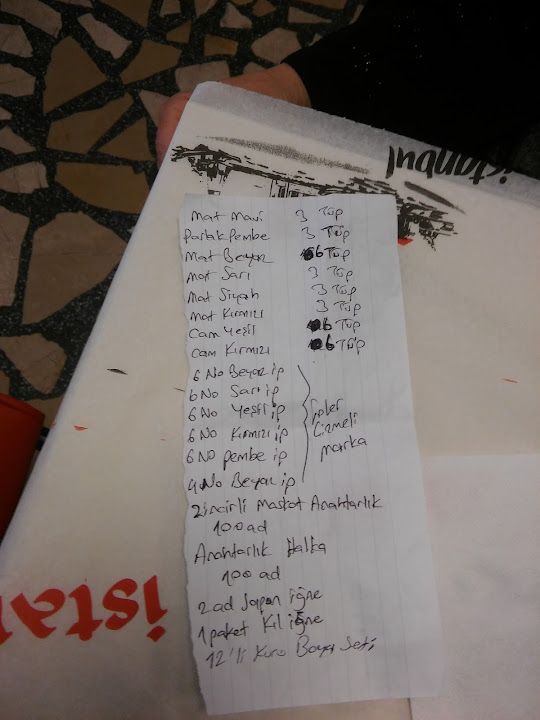 istanbul
Mat Mavi 3 Tüp
Parlak Pembe 3 Tüp
Mat Beyaz 6 Tüp
Mat Sarı 3 Tüp
Mat Siyah 3 Tüp
Mat Kırmızı 3 Tüp
Cam Yeşil 6 Tüp
Cam Kırmızı 6 Tüp
6 No Beyaz ip
6 No Sarı ip
6 No Yeşil ip
6 No Kırmızı ip
6 No pembe ip
4 No Beyaz ip
ipler
Çizmeli
marka
Zincirli Maskot Anahtarlık
100 ad
Anahtarlık Halka
100 ad
2 ad Japon iğne
1 paket Kıl iğne
12'li Kuru Boya Seti
ista